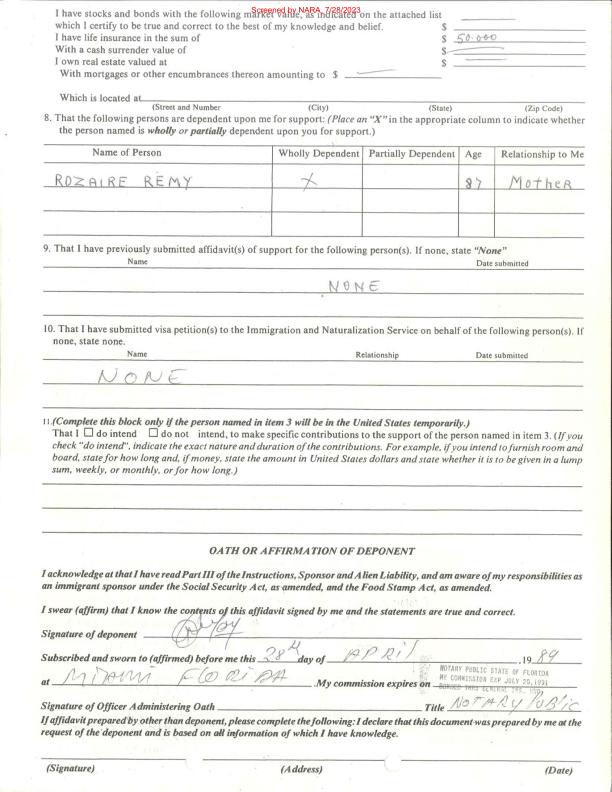 Screened by NARA, 7/28/2023
I have stocks and bonds with the following market value, as indicated on the attached list
which I certify to be true and correct to the best of my knowledge and belief. $
I have life insurance in the sum of $ 50.000
With a cash surrender value of $
I own real estate valued at $
With mortgages or other encumbrances thereon amounting to $
Which is located at
(Street and Number) (City) (State) (Zip Code)
8. That the following persons are dependent upon me for support: (Place an "X" in the appropriate column to indicate whether
the person named is wholly or partially dependent upon you for support.)
Name of Person Wholly Dependent Partially Dependent Age Relationship to Me
ROZAIRE REMY X 87 MotheR
9. That I have previously submitted affidavit(s) of support for the following person(s). If none, state "None"
Name Date submitted
NONE
10. That I have submitted visa petition(s) to the Immigration and Naturalization Service on behalf of the following person(s). If
none, state none.
Name Relationship Date submitted
NONE
11.(Complete this block only if the person named in item 3 will be in the United States temporarily.)
That I ☐ do intend ☐ do not intend, to make specific contributions to the support of the person named in item 3. (If you
check "do intend", indicate the exact nature and duration of the contributions. For example, if you intend to furnish room and
board, state for how long and, if money, state the amount in United States dollars and state whether it is to be given in a lump
sum, weekly, or monthly, or for how long.)
OATH OR AFFIRMATION OF DEPONENT
I acknowledge at that I have read Part III of the Instructions, Sponsor and Alien Liability, and am aware of my responsibilities as
an immigrant sponsor under the Social Security Act, as amended, and the Food Stamp Act, as amended.
I swear (affirm) that I know the contents of this affidavit signed by me and the statements are true and correct.
Signature of deponent
Subscribed and sworn to (affirmed) before me this 28th day of APRIL ,19 89
at MIAMI FLORIDA .My commission expires on
NOTARY PUBLIC STATE OF FLORIDA
MY COMMISSION EXP JULY 20,1991
BONDED THRU GENERAL INS.
Signature of Officer Administering Oath Title NOTARY PUBLIC
If affidavit prepared by other than deponent, please complete the following: I declare that this document was prepared by me at the
request of the deponent and is based on all information of which I have knowledge.
(Signature) (Address) (Date)